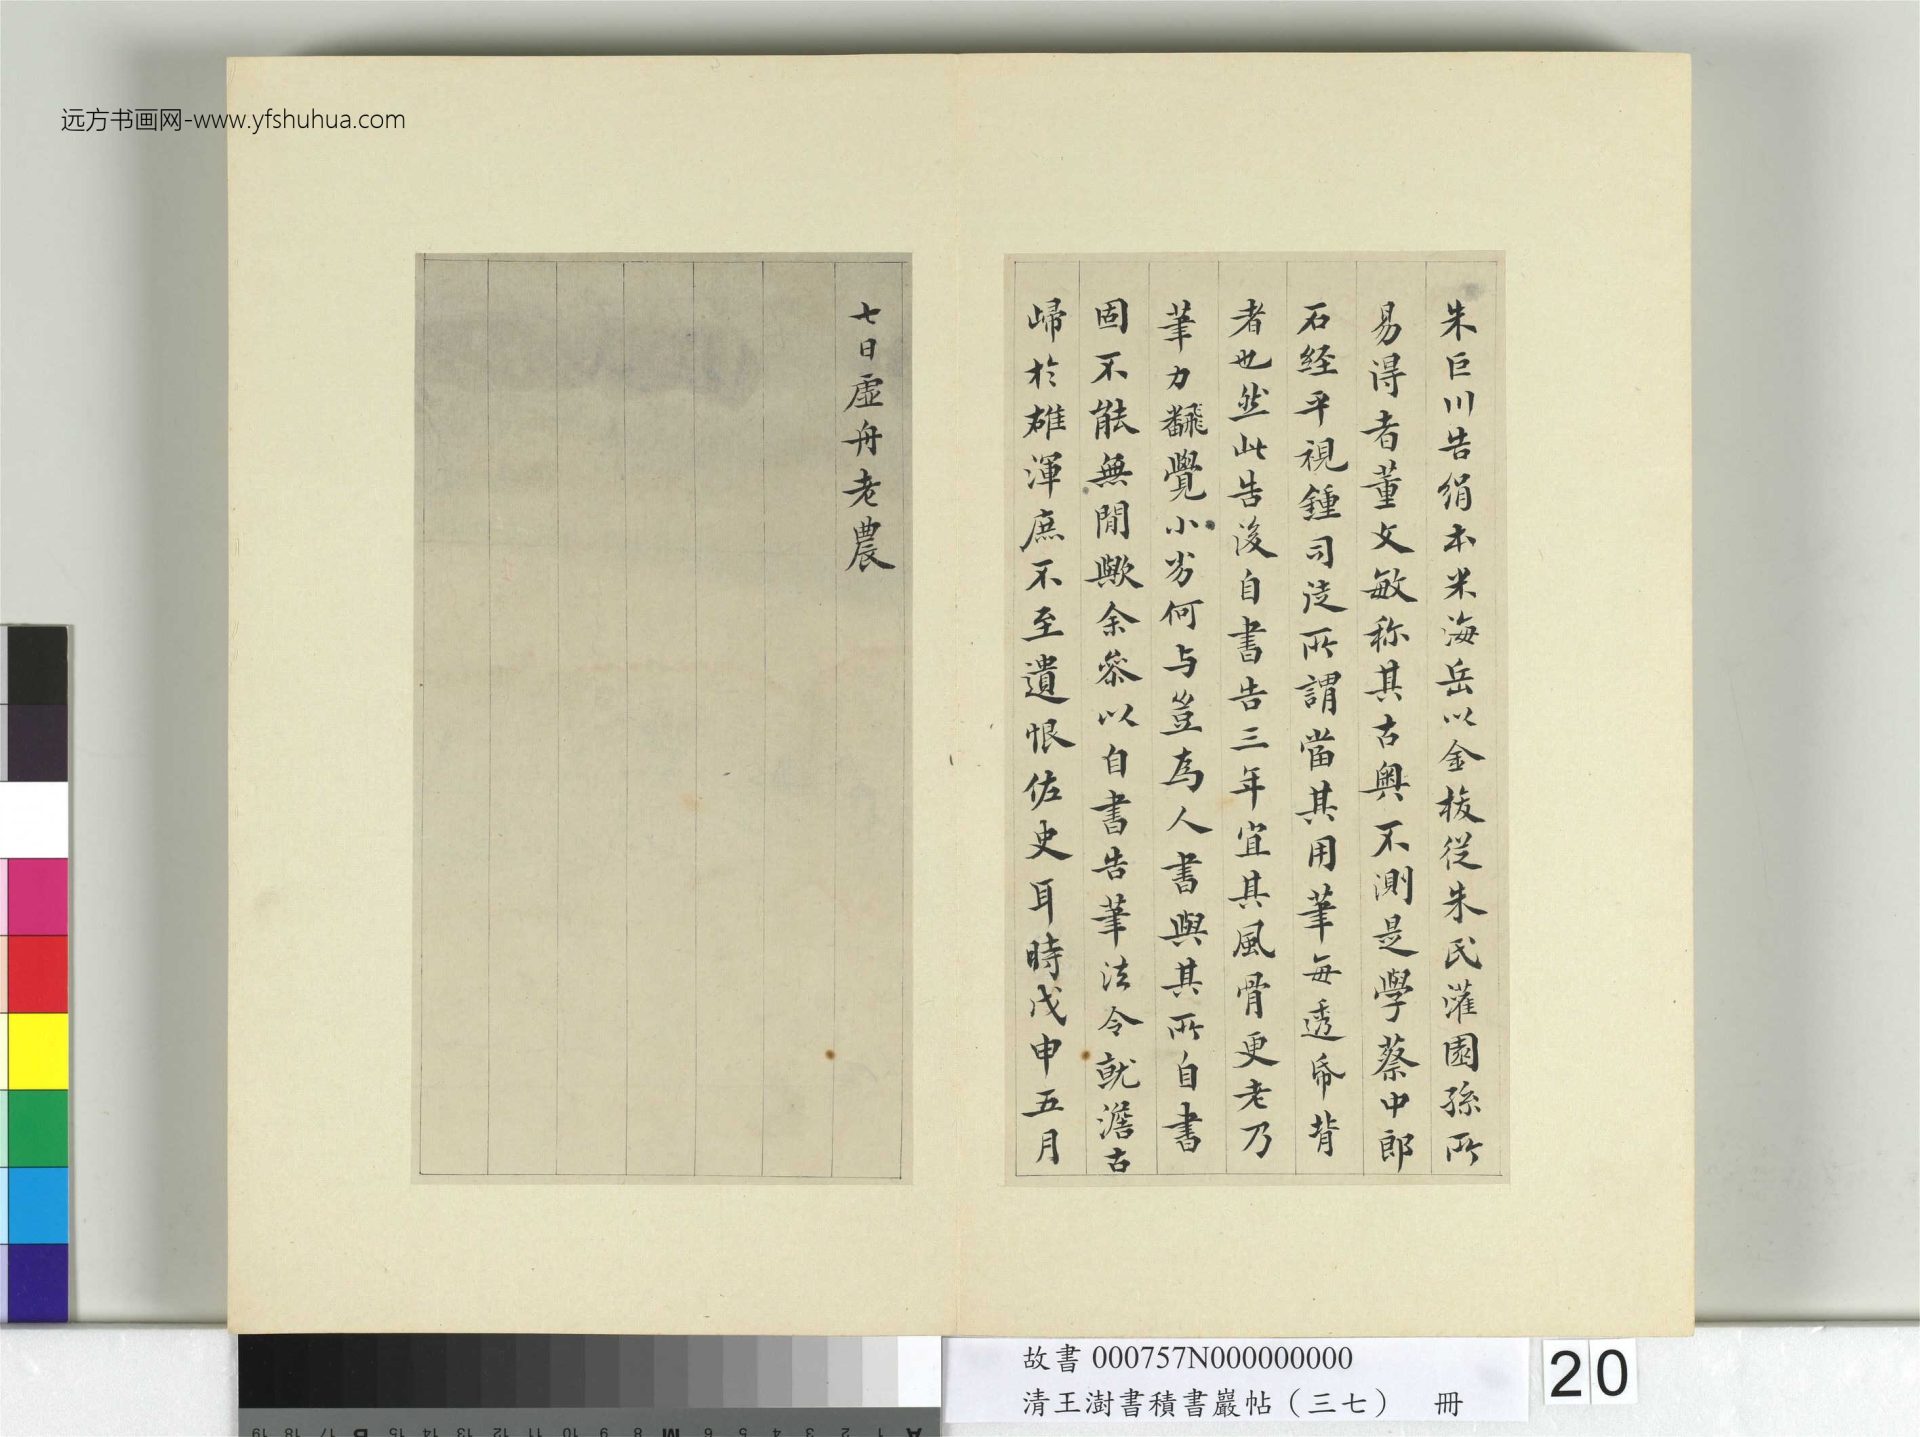 远方书画网-www.yfshuhua.com
朱巨川告绢本米海岳以金梭從朱氏灌園孫所
易得者董文敏称其古奥不測是學蔡中郎
石经平視鍾司徒所謂當其用筆每透帋背
者也然此告後自書告三年宜其風骨更老乃
筆力飜覺小劣何与豈為人書與其所自書
固不能無間歟余叅以自書告筆法令就澹古
歸於雄渾庶不至遺恨佐史耳時戊申五月
七日虛舟老農
故書 000757N000000000
清王澍書積書巖帖（三七） 冊
20